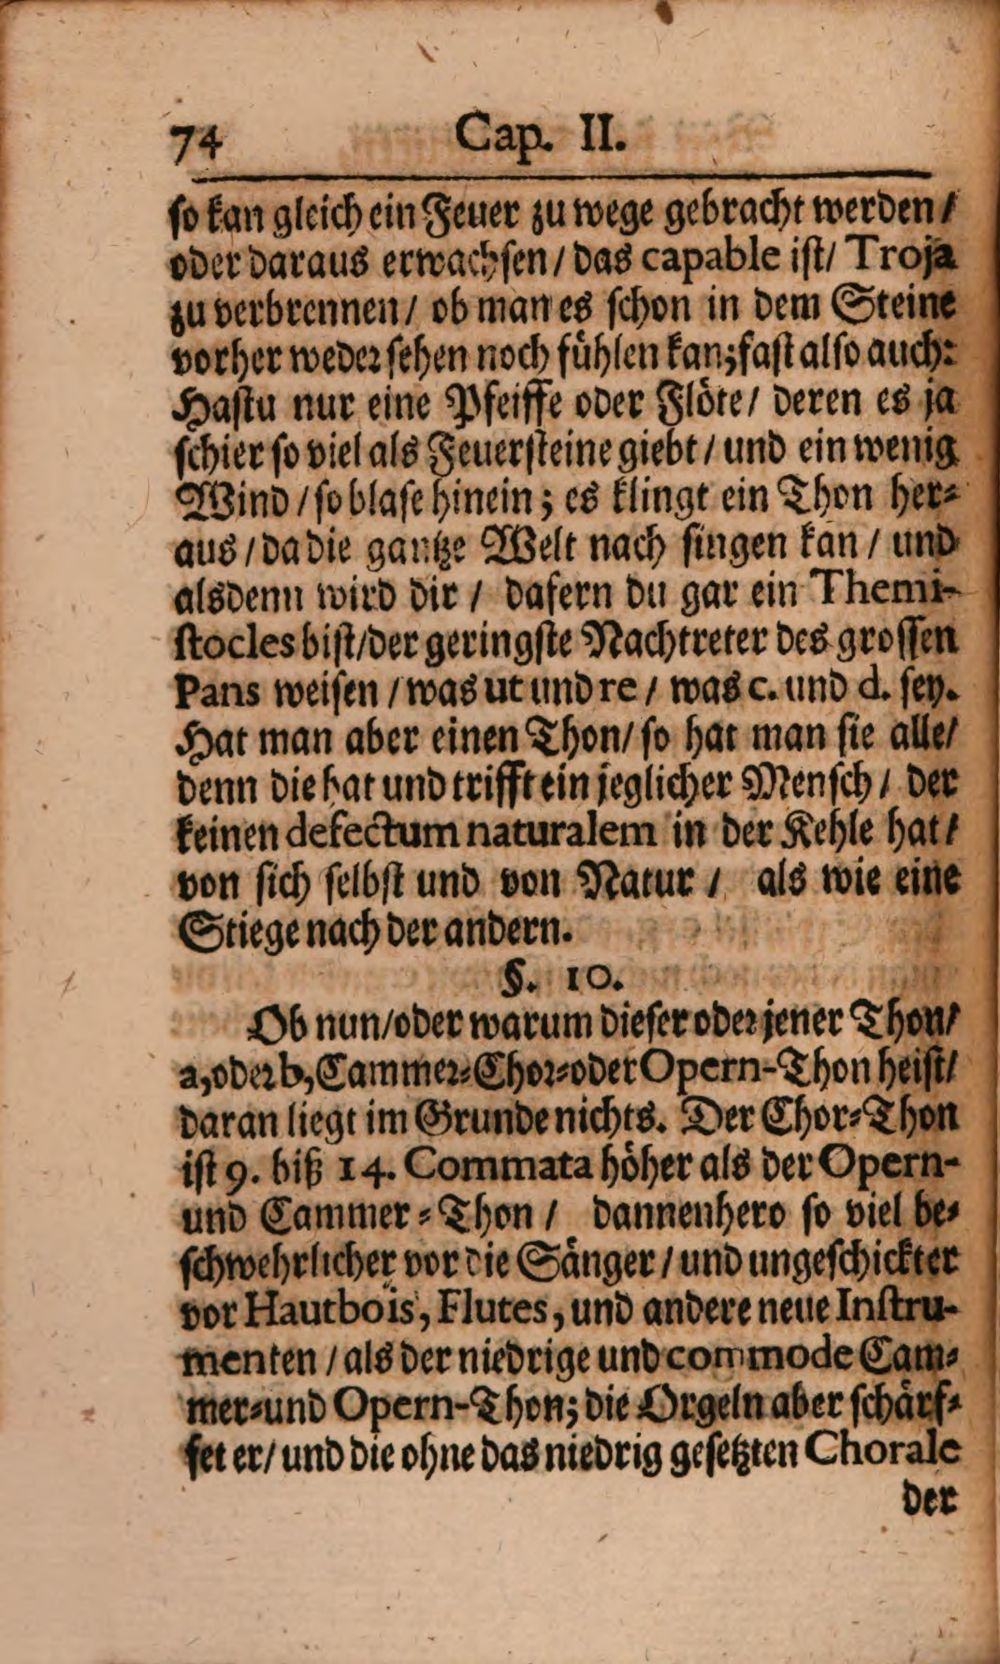 74 Cap. II.
so kan gleich ein Feuer zu wege gebracht werden /
oder daraus erwachsen / das capable ist / Troja
zu verbrennen / ob man es schon in dem Steine
vorher weder sehen noch fühlen kan; fast also auch:
Hastu nur eine Pfeiffe oder Flöte / deren es ja
schier so viel als Feuersteine giebt / und ein wenig
Wind / so blase hinein; es klingt ein Thon her-
aus / da die gantze Welt nach singen kan / und
alsdenn wird dir / dafern du gar ein Themi-
stocles bist / der geringste Nachtreter des grossen
Pans weisen / was ut und re / was c. und d. sey.
Hat man aber einen Thon / so hat man sie alle /
denn die hat und trifft ein jeglicher Mensch / der
keinen defectum naturalem in der Kehle hat /
von sich selbst und von Natur / als wie eine
Stiege nach der andern.
§. 10.
Ob nun / oder warum dieser oder jener Thon /
a, oder b, Cammer-Chor-oder Opern-Thon heist /
daran liegt im Grunde nichts. Der Chor-Thon
ist 9. biß 14. Commata höher als der Opern-
und Cammer-Thon / dannenhero so viel be-
schwehrlicher vor die Sänger / und ungeschickter
vor Hautbois, Flutes, und andere neue Instru-
menten / als der niedrige und commode Cam-
mer-und Opern-Thon; die Orgeln aber schärf-
fet er / und die ohne das niedrig gesetzten Chorale
der